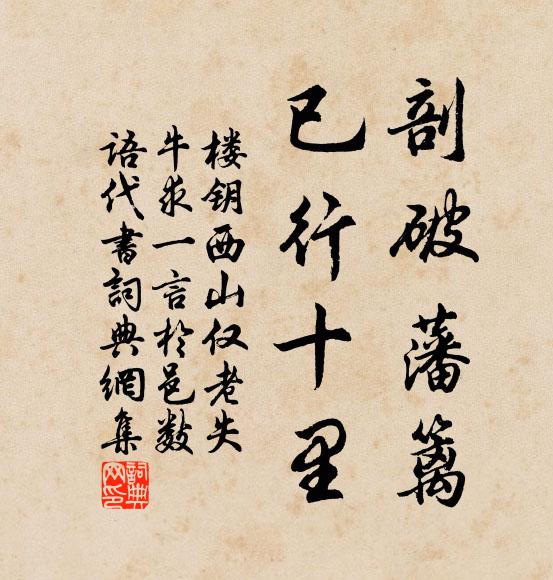 剖破藩篱
已行十里
楼钥西山仅老失
牛求一言於邑数
语代书詞典網集
詞典网印